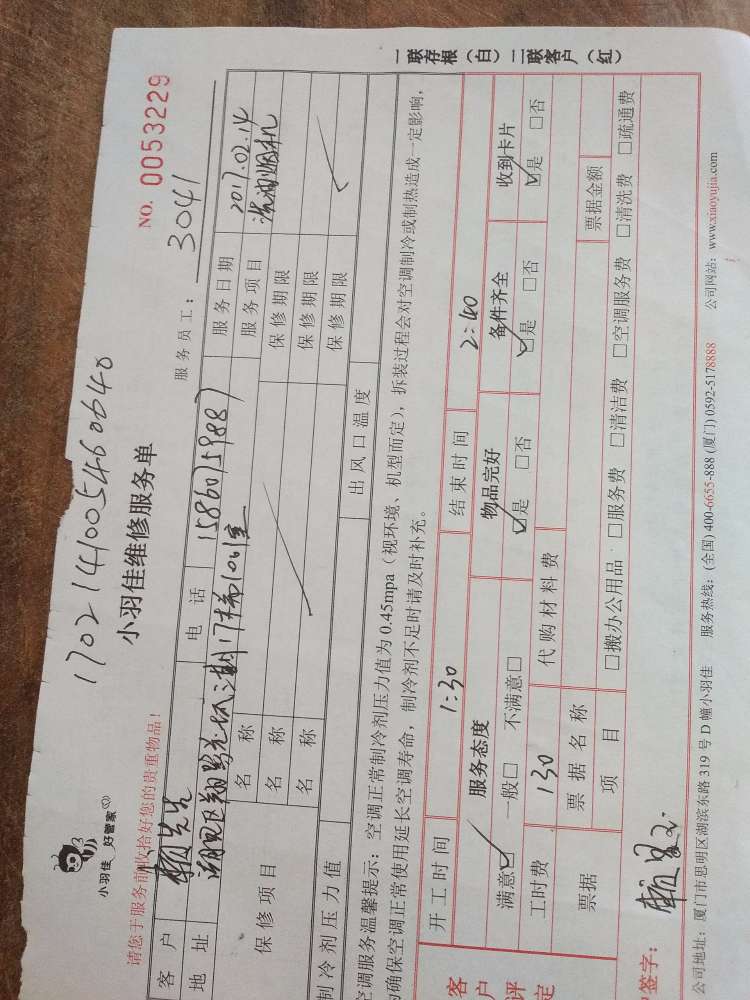 1702141005460640
小羽佳 好管家
小羽佳维修服务单
NO. 0053229
请您于服务前收拾好您的贵重物品！
服务员工：3041
客户 赖先生 电话 15860759887 服务日期 2017.02.14
地址 服务项目 洗油烟机
保修项目 名称 保修期限
名称 保修期限
名称 保修期限
制冷剂压力值 出风口温度
空调服务温馨提示：空调正常制冷剂压力值为0.45mpa（视环境、机型而定），拆装过程会对空调制冷或制热造成一定影响，
为确保空调正常使用延长空调寿命，制冷剂不足时请及时补充。
开工时间 1:30 结束时间 2:40
客户评定 服务态度 物品完好 备件齐全 收到卡片
满意☑ 一般□ 不满意□ ☑是 □否 ☑是 □否 ☑是 □否
工时费 130 代购材料费
票据 票据名称 票据金额
项目 □搬办公用品 □服务费 □清洁费 □空调服务费 □清洗费 □疏通费
签字：
公司地址：厦门市思明区湖滨东路319号D幢小羽佳 服务热线：(全国) 400-6655-888 (厦门) 0592-5178888 公司网站：www.xiaoyujia.com
一联存根（白）二联客户（红）